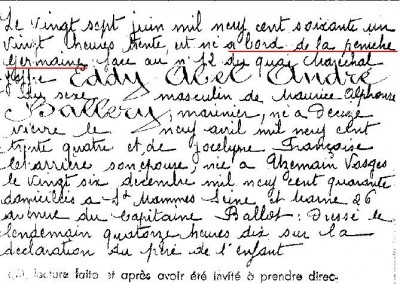 Le vingt sept juin mil neuf cent soixante un
vingt heures trente, est né à bord de la peniche
Germaine, face au n° 12 du quai Maréchal
Joffre Eddy Abel André
du sexe masculin de Maurice Alphonse
Ballery, marinier, né à
le neuf avril mil neuf cent
trente quatre et de Jocelyne Françoise
son épouse, née à Uzemain Vosges
le vingt six décembre mil neuf cent quarante
domiciliés à St Mammes Seine et Marne 26
avenue du Capitaine Ballot : Dressé le
lendemain quatorze heures dix sur la
déclaration du père de l'enfant
qui, lecture faite et après avoir été invité à prendre direc-